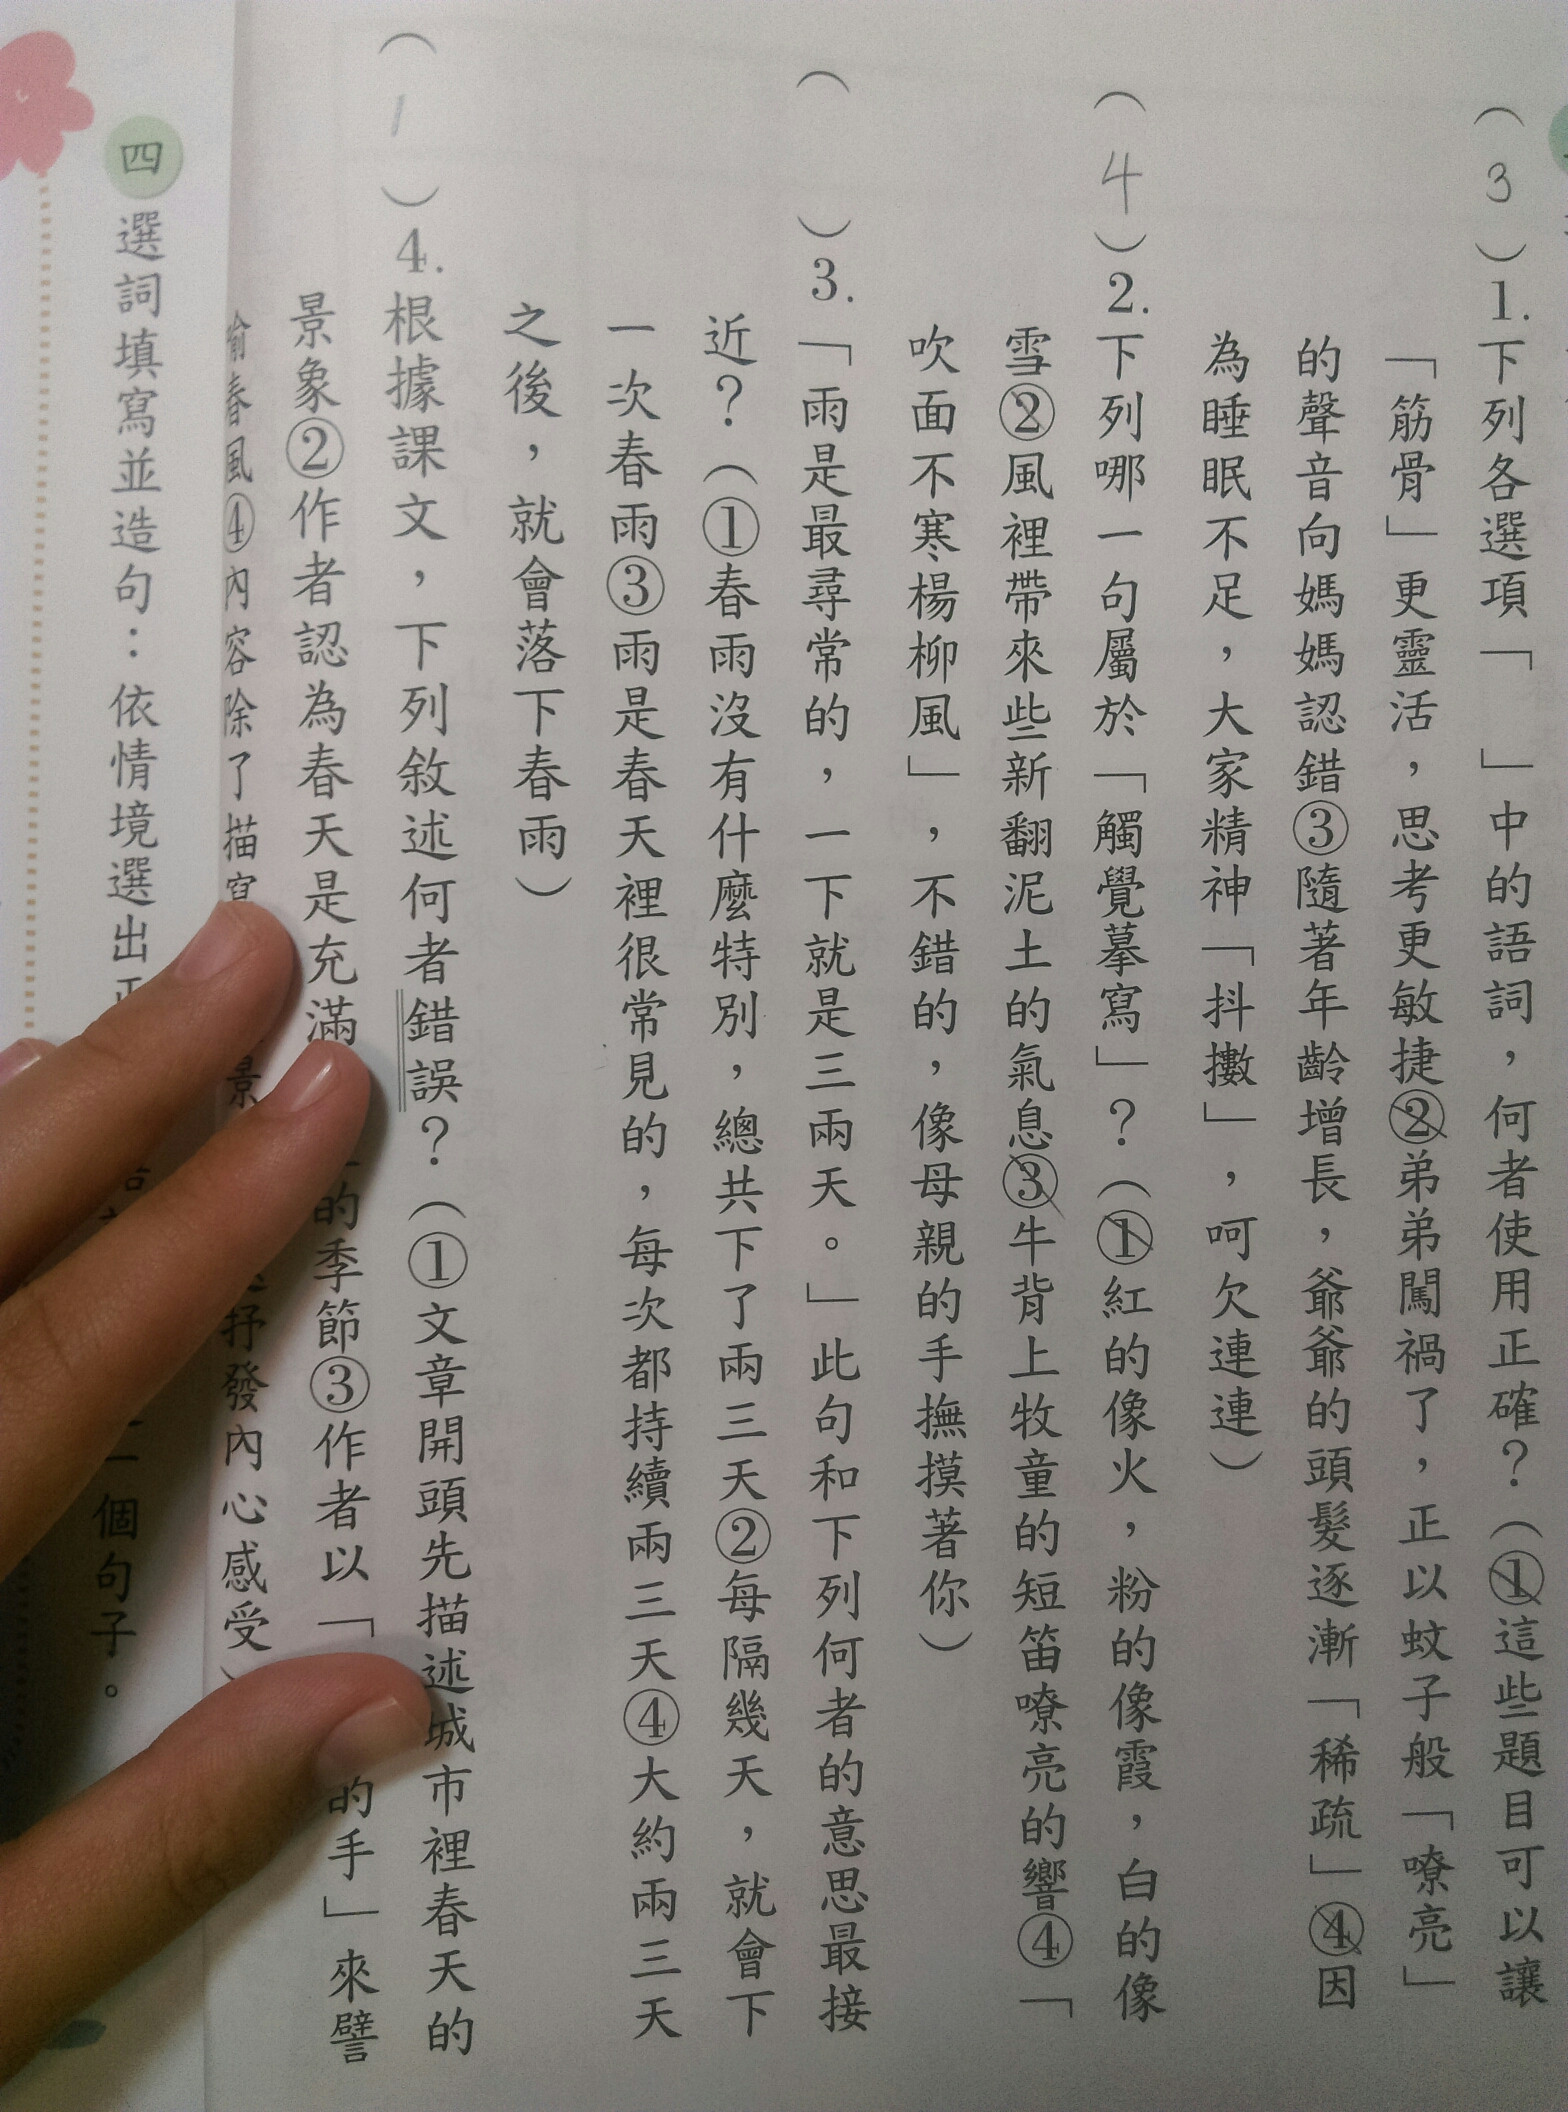 (3)1.下列各選項「　」中的語詞，何者使用正確？（①這些題目可以讓
「筋骨」更靈活，思考更敏捷②弟弟闖禍了，正以蚊子般「嘹亮」
的聲音向媽媽認錯③隨著年齡增長，爺爺的頭髮逐漸「稀疏」④因
為睡眠不足，大家精神「抖擻」，呵欠連連）
(4)2.下列哪一句屬於「觸覺摹寫」？（①紅的像火，粉的像霞，白的像
雪②風裡帶來些新翻泥土的氣息③牛背上牧童的短笛嘹亮的響④「
吹面不寒楊柳風」，不錯的，像母親的手撫摸著你）
(　)3.「雨是最尋常的，一下就是三兩天。」此句和下列何者的意思最接
近？（①春雨沒有什麼特別，總共下了兩三天②每隔幾天，就會下
一次春雨③雨是春天裡很常見的，每次都持續兩三天④大約兩三天
之後，就會落下春雨）
(1)4.根據課文，下列敘述何者錯誤？（①文章開頭先描述城市裡春天的
景象②作者認為春天是充滿的季節③作者以「的手」來譬
喻春風④內容除了描寫景抒發內心感受）
四 選詞填寫並造句：依情境選出一個句子。